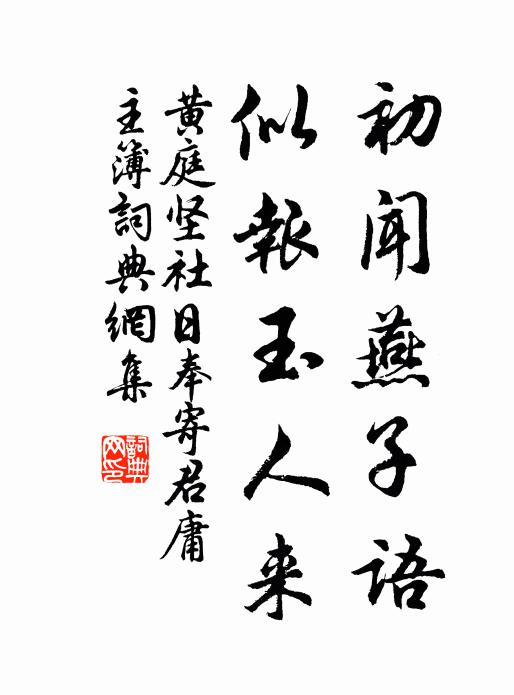 初闻燕子语
似報玉人来
黄庭坚社日奉寄君庸
主簿詞典網集
詞典
网印